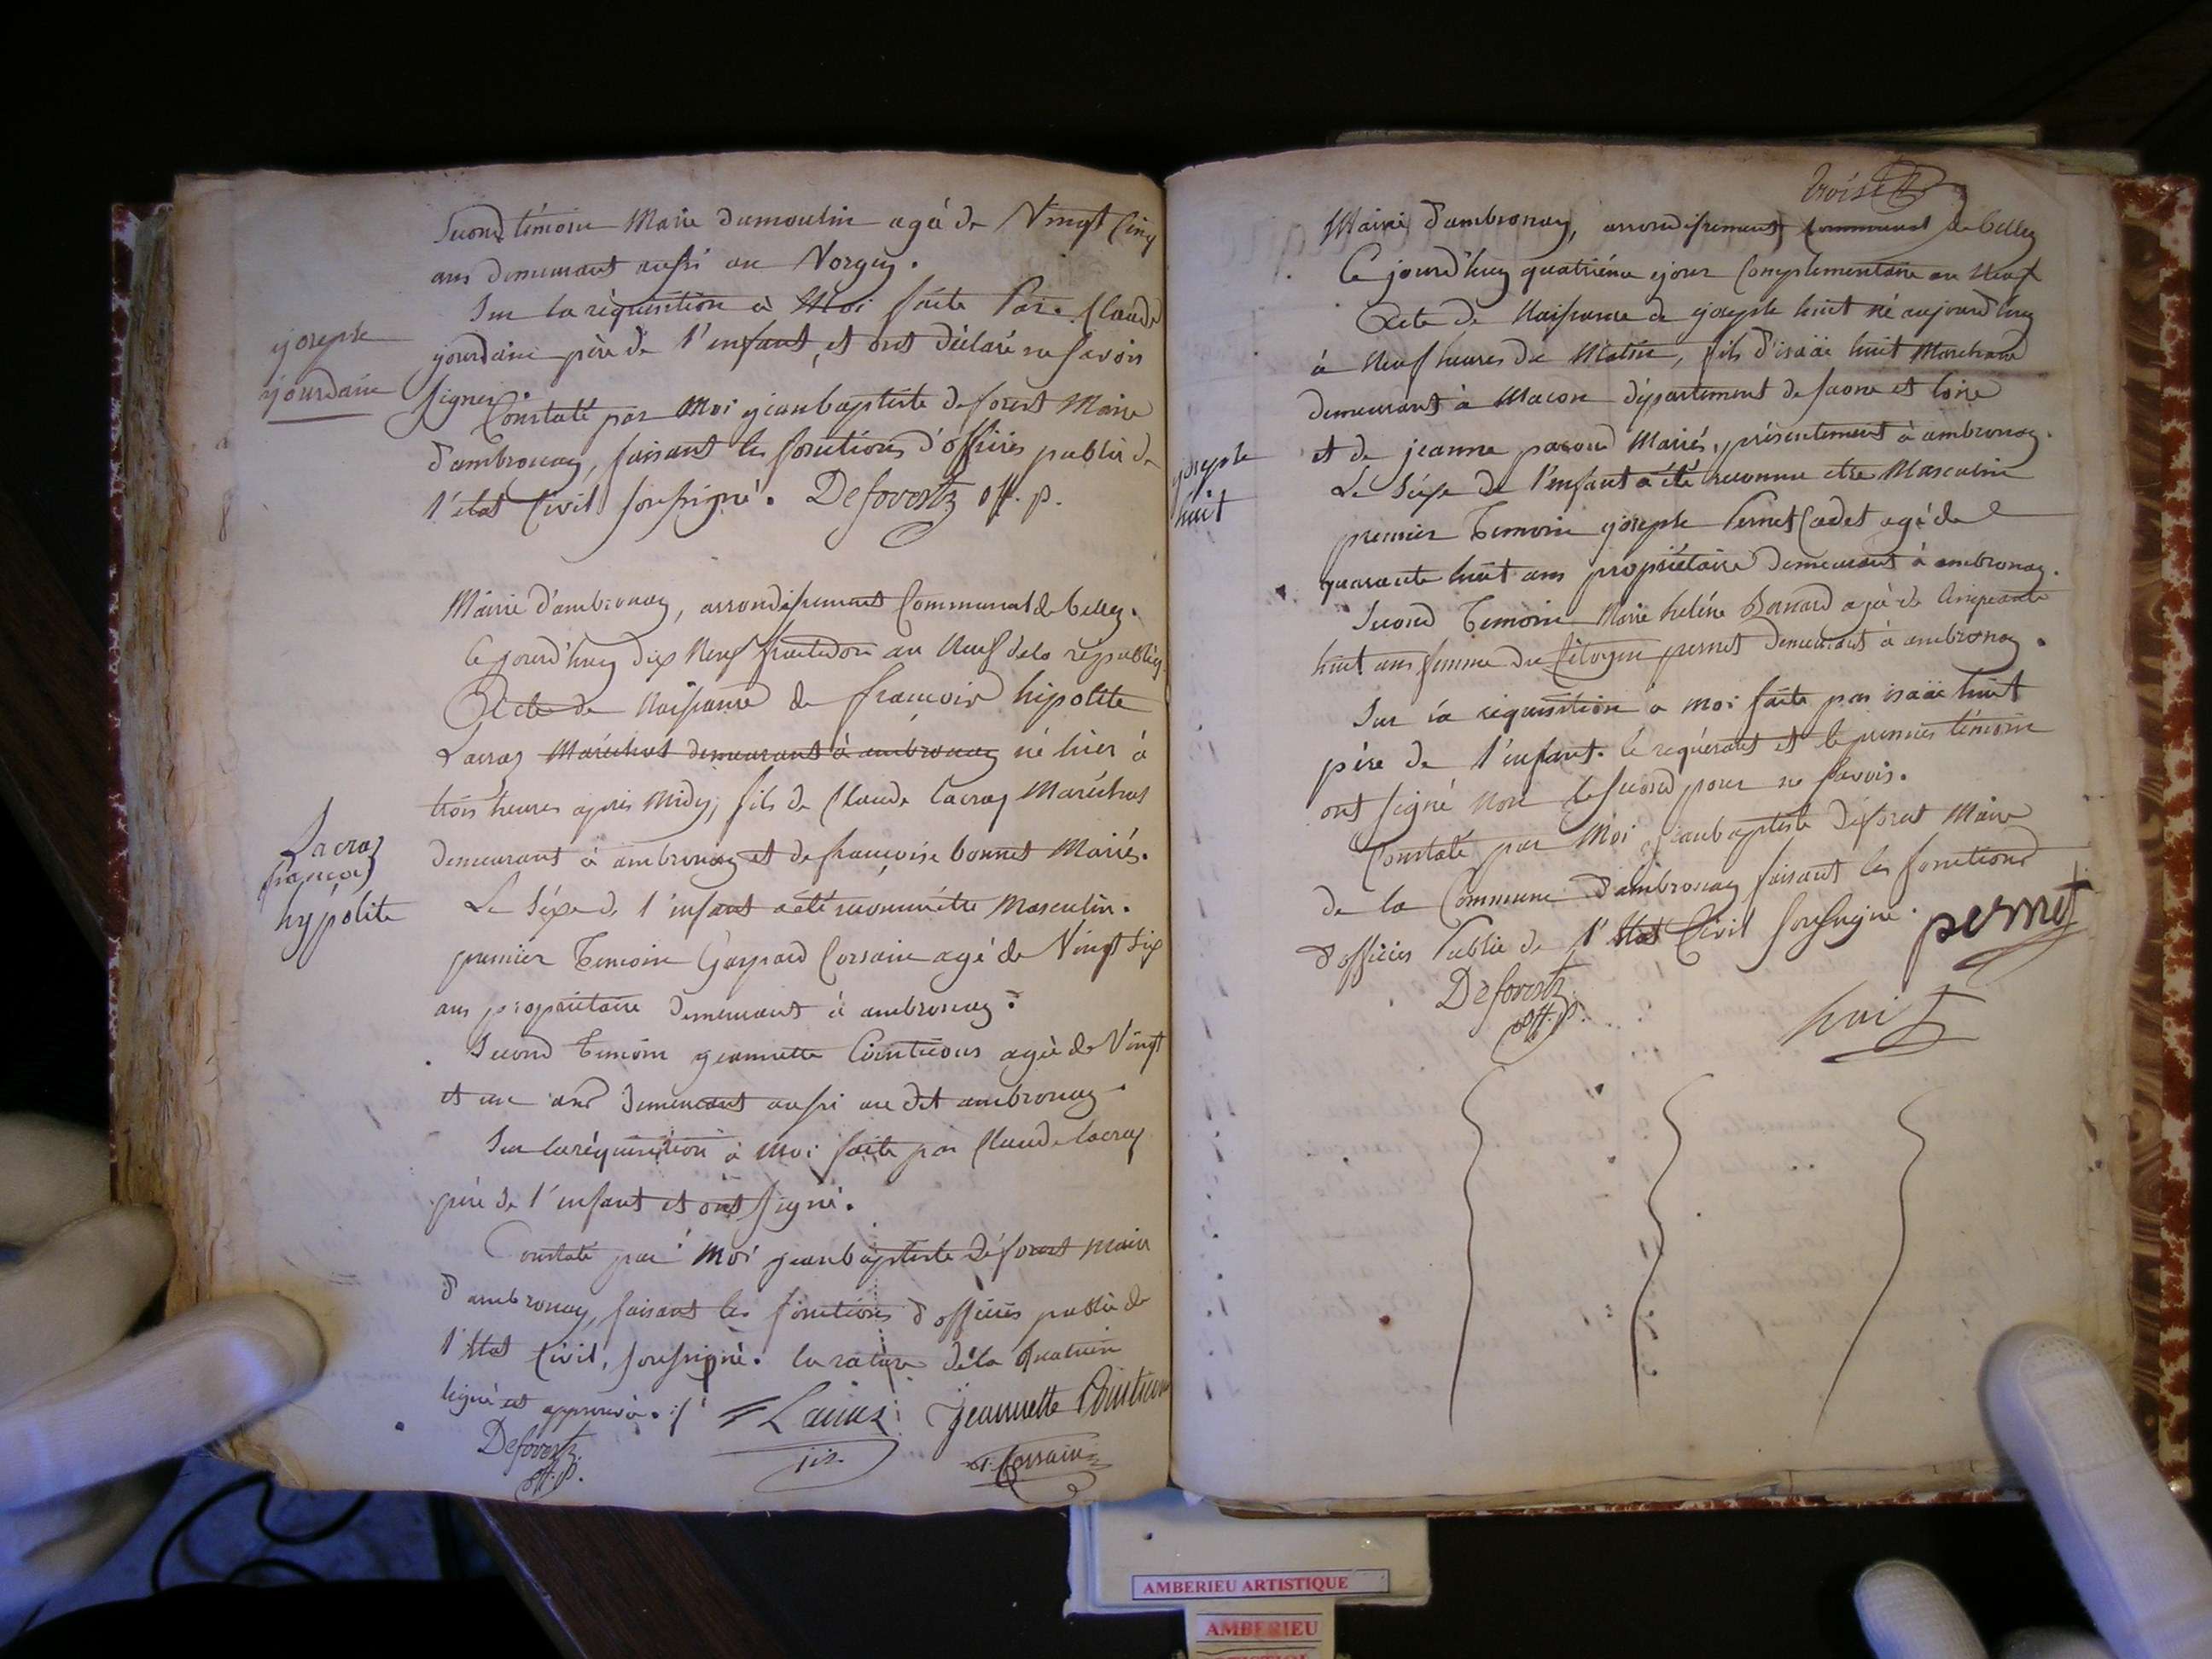 Second témoin Marie dumoulin agé de Vingt Cinq
ans demeurant aussi au Vorgey.
Sur la réquisition à Moi faite Par Claude
jourdain père de l'enfant, et ont déclaré ne savoir
signer.
joseph
jourdain
Constaté par Moi jeanbaptiste deforest Maire
d'ambronay, faisant les fonctions d'officier public de
l'état Civil soussigné. Deforestz off. p.
Mairie d'ambronay, arrondissement Communal de belley.
Ce jourd'huy dix Neuf fructidor an Neuf de la républiq
Acte de Naissance de francois hipolite
Lacraz Maréchal demeurant à ambronay né hier à
trois heures après Midy, fils de Claude Lacraz Maréchal
demeurant à ambronay et de francoise bonnet Mariés.
Lacraz
françois
hypolite
Le Sexe de l'enfant a été reconnu être Masculin.
premier Temoin Gaspard Corsain agé de Vingt Six
ans propriétaire demeurant à ambronay.
Second Temoin jeannette agée de Vingt
et un ans demeurant aussi au dit ambronay.
Sur la réquisition à Moi faite par Claude lacraz
père de l'enfant et ont signé.
Constaté par Moi jeanbaptiste déforest Maire
d'ambronay, faisant les fonctions d'officier public de
l'état Civil, soussigné. la rature de la Quatrieme
ligne est approuvée.
Lacraz jeannette
Deforestz
off. p.
Corsain
Mairie d'ambronay, arrondissement Communal de belley
Ce jourd'huy quatriéme jour Complementaire an Neuf
Acte de Naissance de joseph huit né aujourd'huy
à Neuf heures du Matin, fils d'isaïe huit Marchand
demeurant à Macon département de saone et loire
et de jeanne pacoud Mariés, présentement à ambronay.
joseph
huit
Le Sexe de l'enfant a été reconnu etre Masculin
premier Temoin joseph Pernet Cadet agé de
quarante huit ans propriétaire demeurant à ambronay.
Second Temoin Marie heléne Bernard agée de Cinquante
huit ans femme du Citoyen pernet demeurant à ambronay.
Sur la requisition à moi faite par isaïe huit
père de l'enfant. le requérant et le premier témoin
ont signé Non le second pour ne savoir.
Constaté par Moi jeanbaptiste déforest Maire
de la Commune d'ambronay faisant les fonctions
d'officier Public de l'état Civil soussigné. pernet
Deforestz
off. p.
huit
AMBERIEU ARTISTIQUE
AMBERIEU